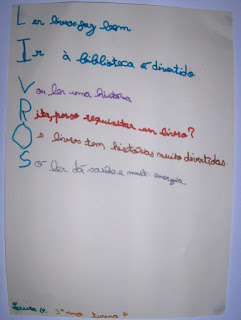 Ler livros faz bem
Ir à biblioteca é divertido
Vou ler uma história
Rita, posso requisitar um livro?
Os livros tem histórias muito divertidas
Só ler dá saúde e muit energia.
3º ano turma